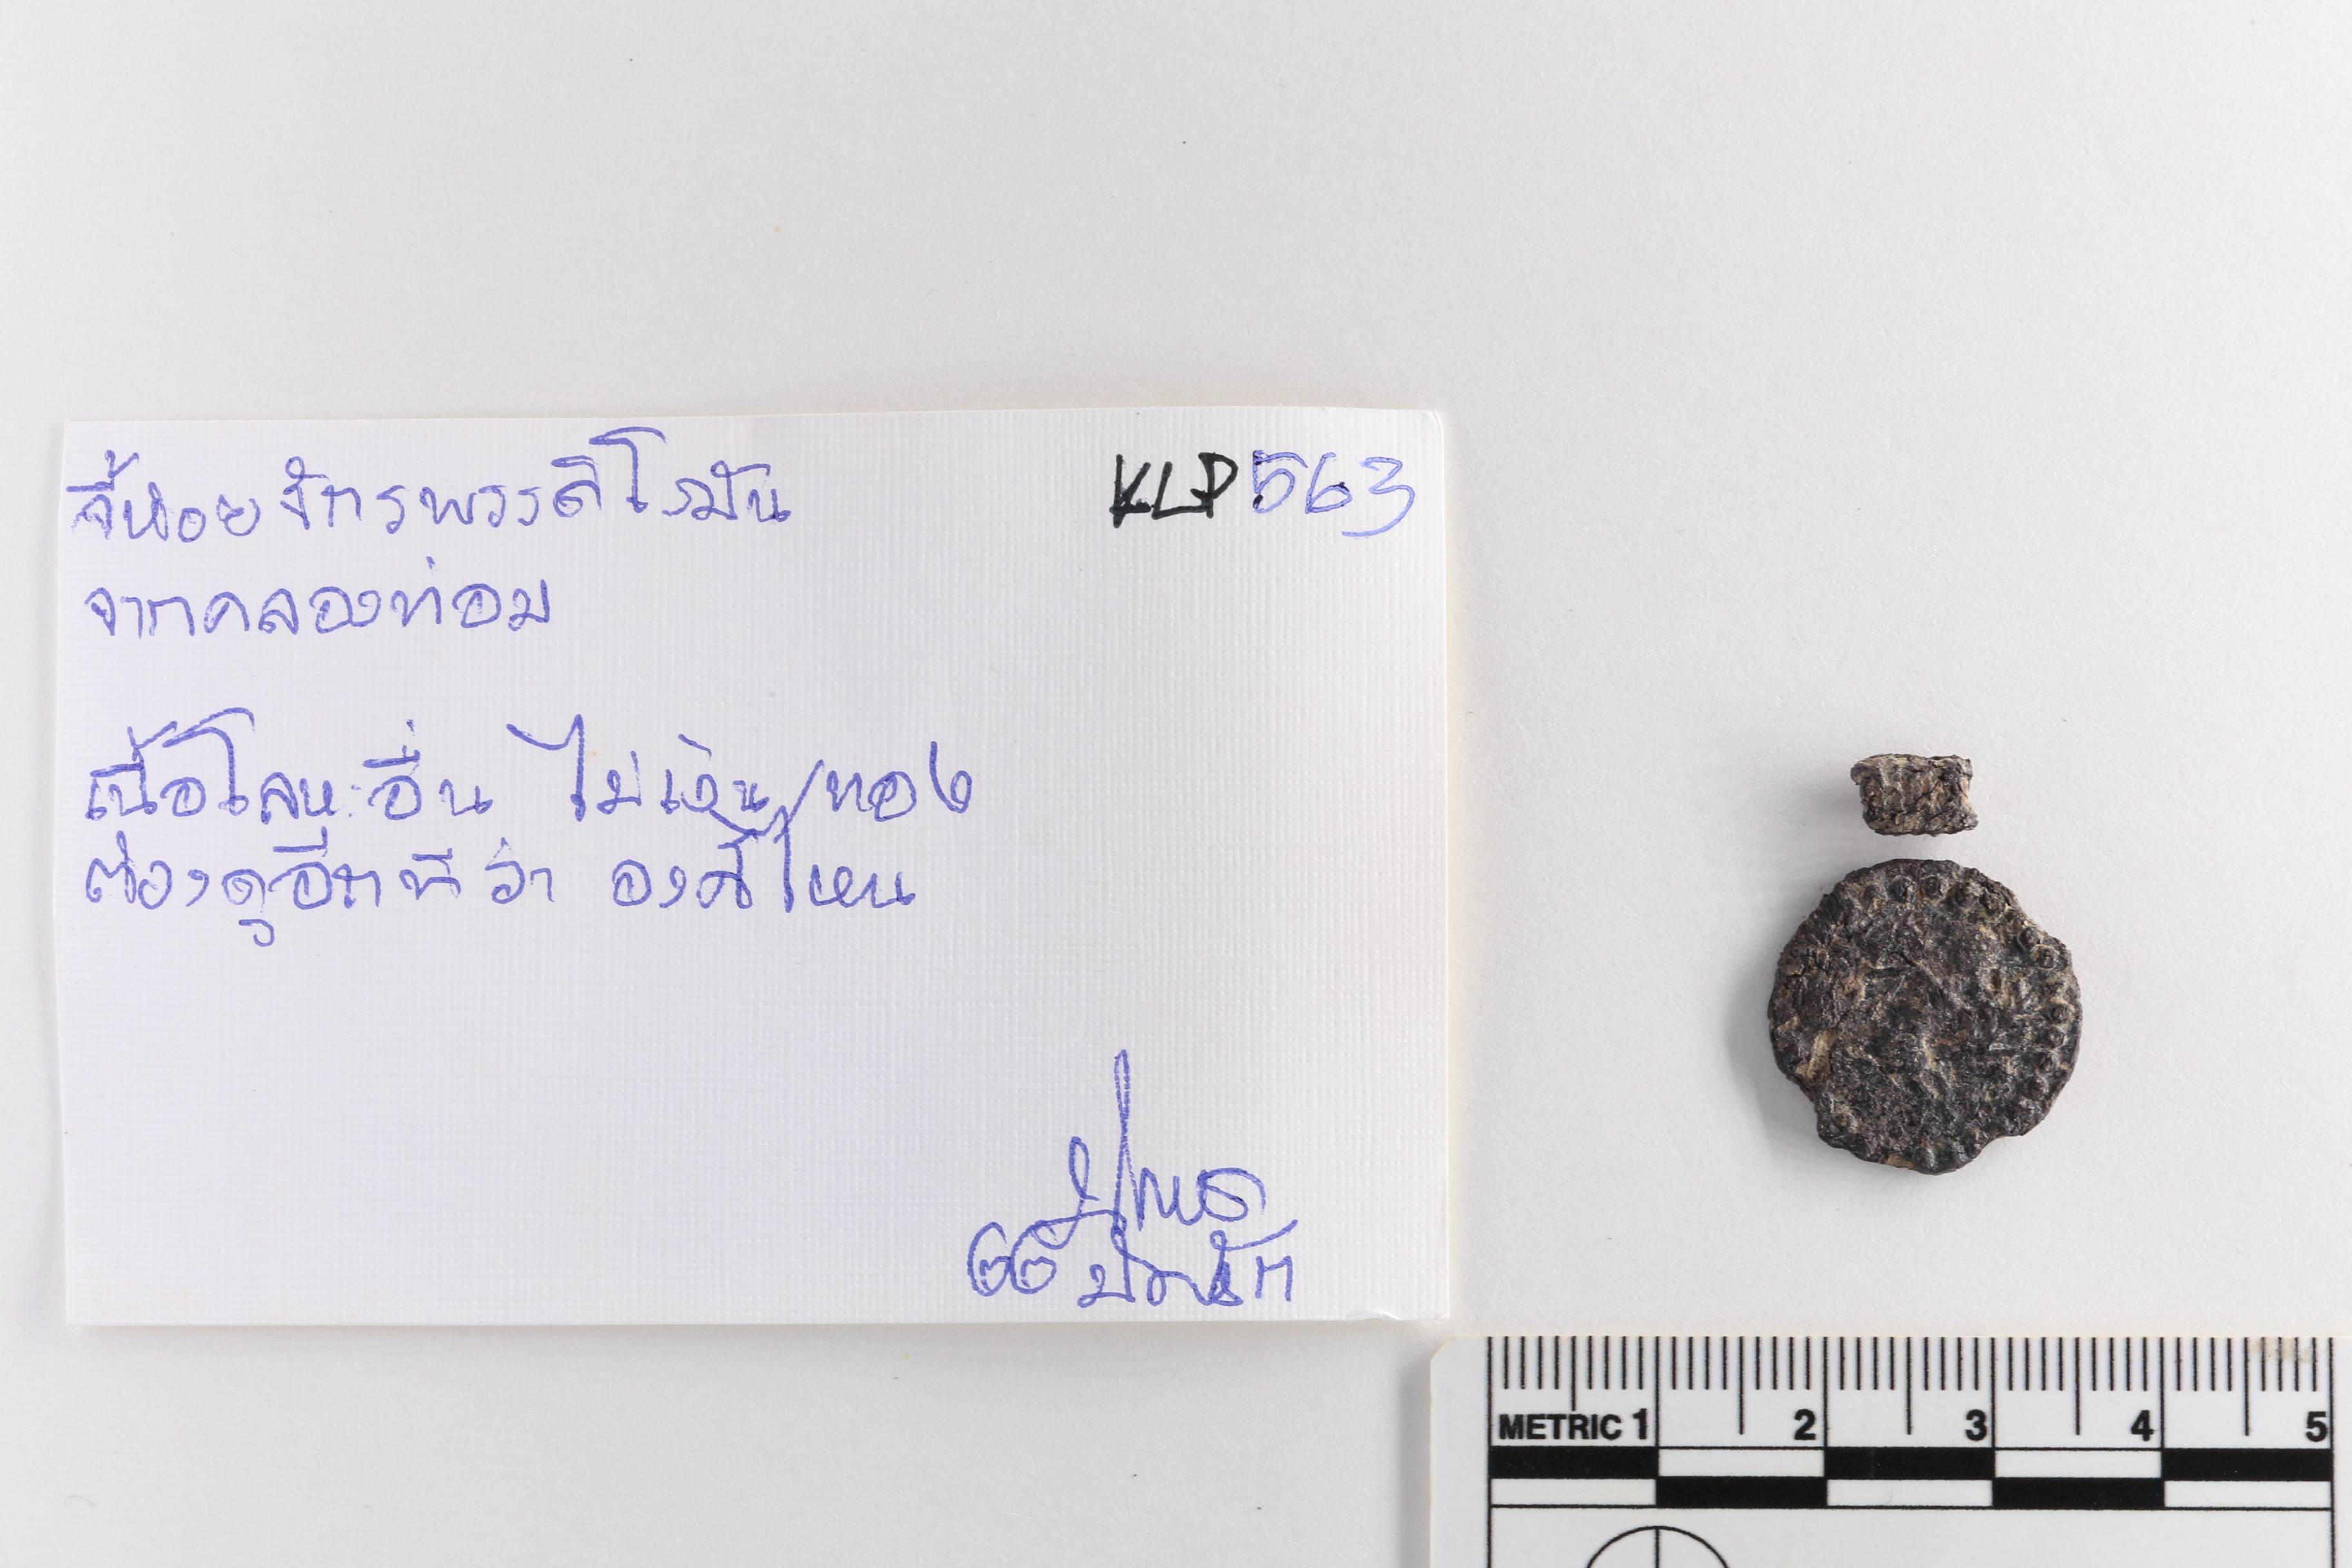 จี้ห้อยจักรพรรดิโรมัน
KLP563
จากคลองท่อม
เนื้อโลหะอื่น ไม่เงิน/ทอง
ต้องดูอีกทีว่า องค์ไหน
METRIC 1 2 3 4 5